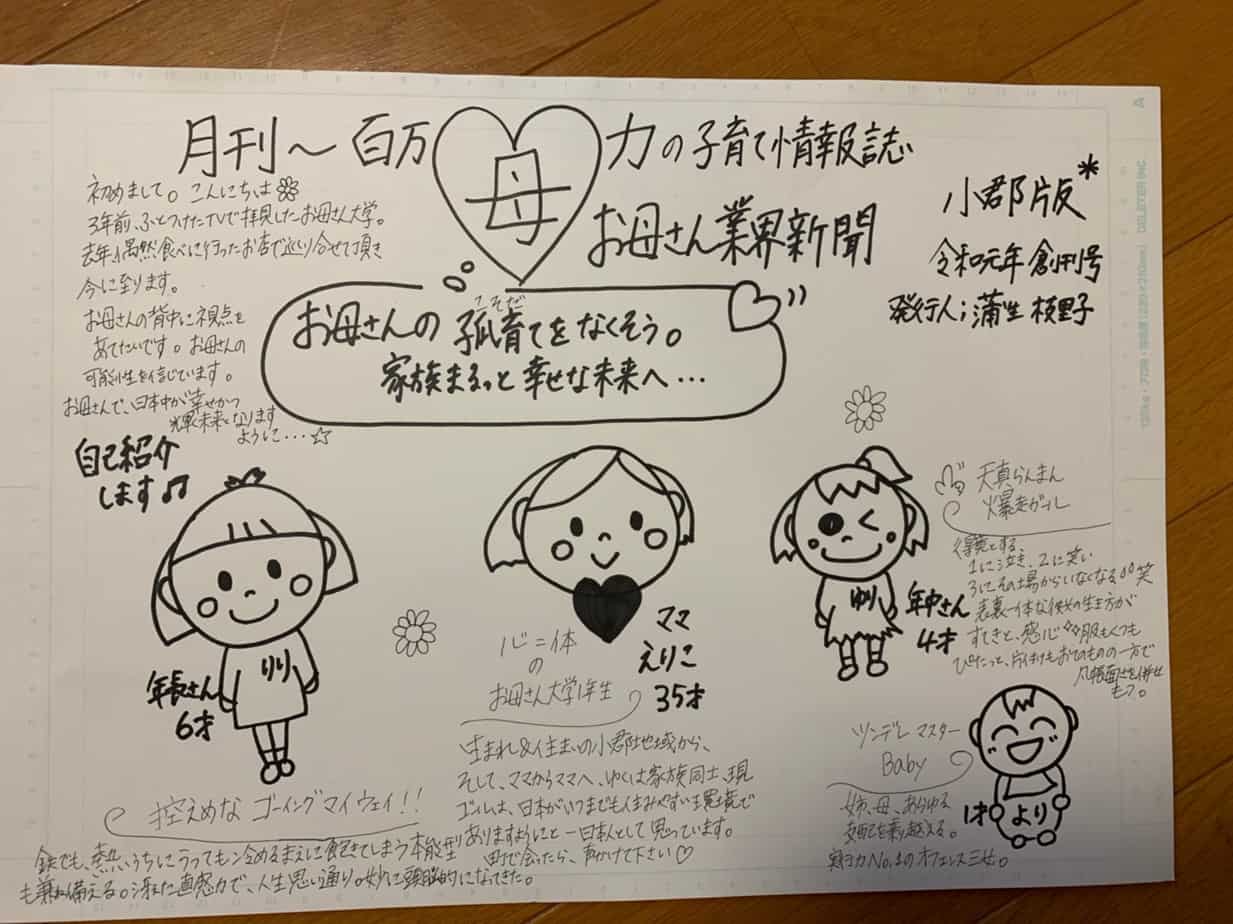 月刊〜百万母力の子育て情報誌
お母さん業界新聞
小郡版*
令和元年 創刊号
発行人;蒲生 枝里子
初めまして。こんにちは
3年前、ふとつけたTVで拝見したお母さん大学。
去年、偶然食べに行ったお店で巡り合せて頂き
今に至ります。
お母さんの背中に視点を
あてたいです。お母さんの
可能性を信じています。
お母さんで、日本中が幸せかつ
輝く未来となります
ように...☆
こそだ
お母さんの 孤育てをなくそう。
家族まるっと 幸せな未来へ...
自己紹介
します♫
りり
年長さん
6才
控えめな ゴーイングマイウェイ!!
鉄でも、熱いうちにうっても冷めるまえに飽きてしまう本能型
も兼ね備える。冴えた直感力で、人生思い通り。妙に頭脳的になってきた。
ママ
えりこ
35才
心二体
の
お母さん大学1年生
生まれ&住まいの小郡地域から、
そして、ママからママへ、ゆくゆくは家族同士、現
ゴールは、日本がいつまでも住みやすい環境で
ありますようにと一日本人として思っています。
町で会ったら、声かけて下さい♡
ゆり
年中さん
4才
天真らんまん
爆走ガール
得意とする、
1に泣き、2に笑い
3にその場からいなくなる 笑
表裏一体な彼女の生き方が
すてきと、感心 服もくつも
ぴたっと、片付けもおてのものの一方で
几帳面さを併せ
もつ。
ツンデレ マスター
Baby
より
1才
姉、母、あらゆる
を乗り越える。
No.1のオフェンス三女。
A
DELETER INC